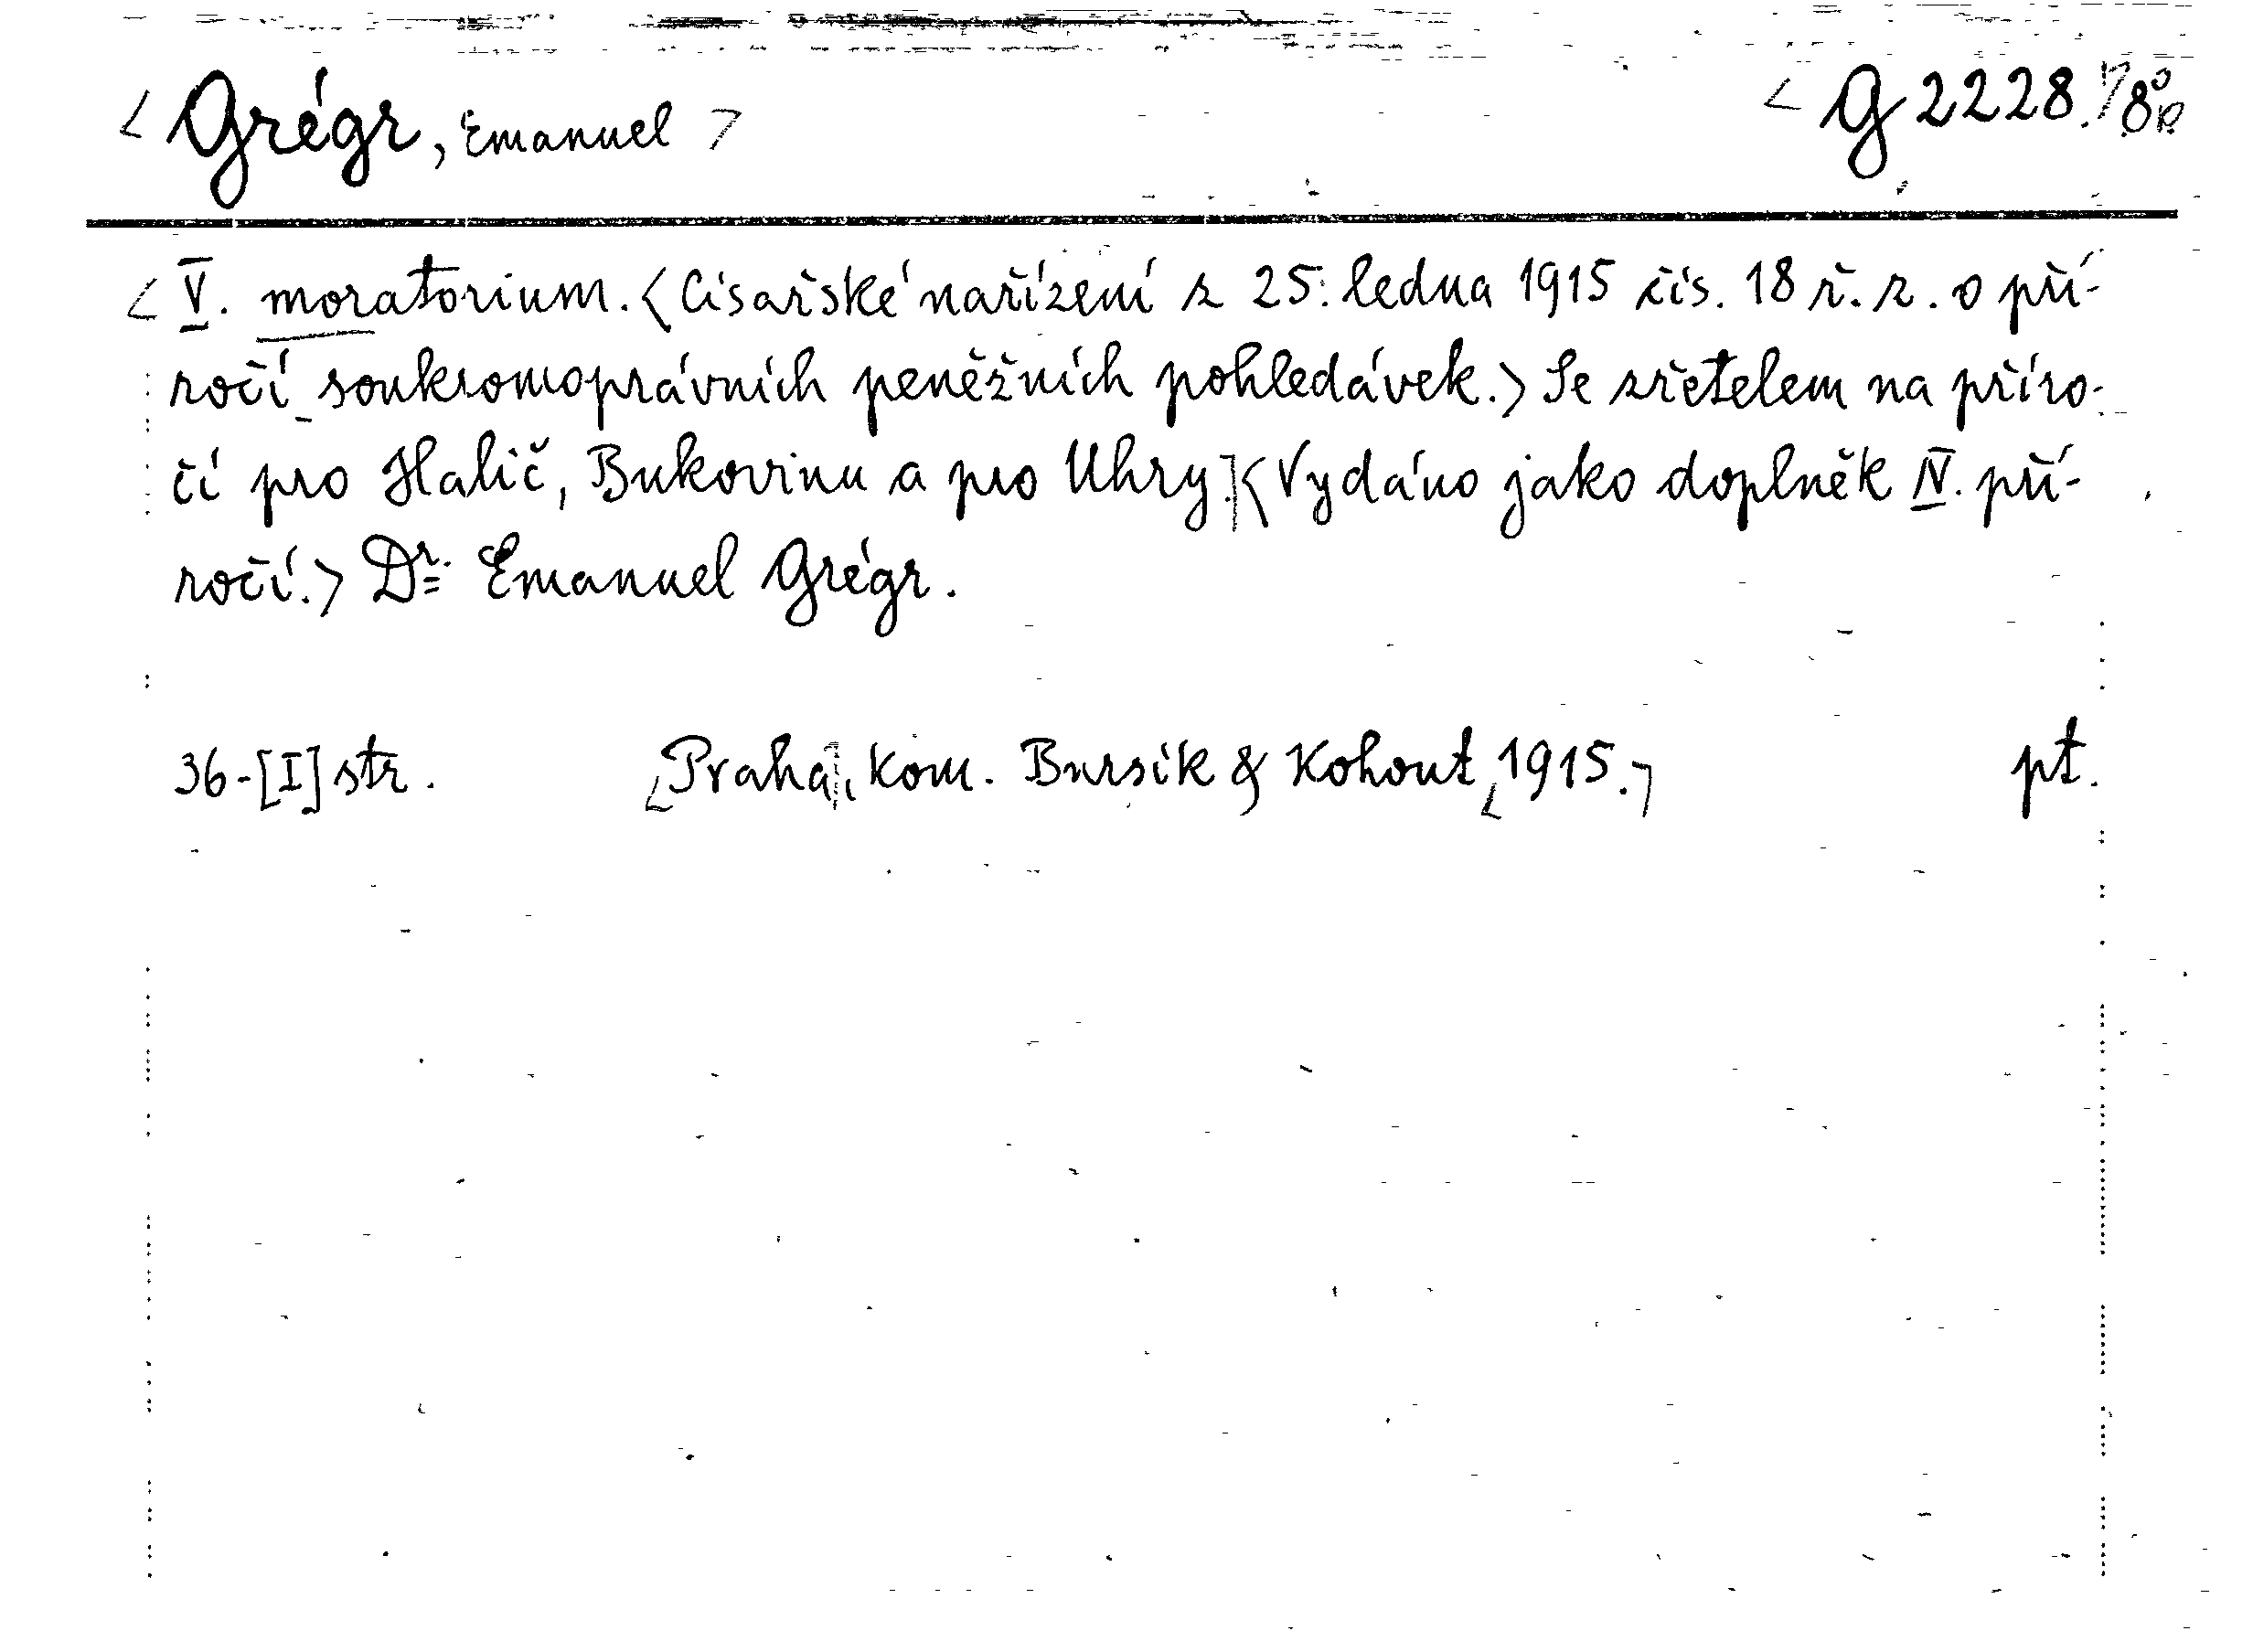 Grégr, Emanuel G 2228. 8°
V. moratorium. <Císařské nařízení z 25. ledna 1915 čís. 18 ř. z. o pří-
ročí soukromoprávních peněžních pohledávek.> Se zřetelem na příro-
čí pro Halič, Bukovinu a pro Uhry.] <Vydáno jako doplněk IV. pří-
ročí.> Dr. Emanuel Grégr.
36-[I] str. Praha, kom. Bursík & Kohout 1915. pt.